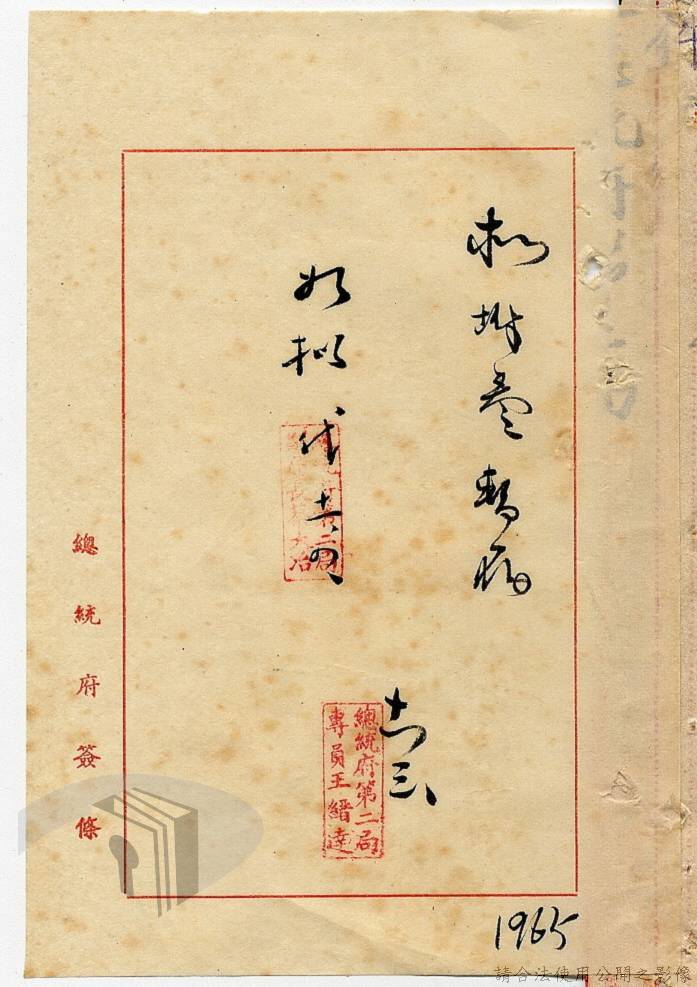 擬附卷暫存
十一、三
總統府第二局
專員王縉達
如擬 代 十一、四
總統府簽條
1965
請合法使用公開之影像